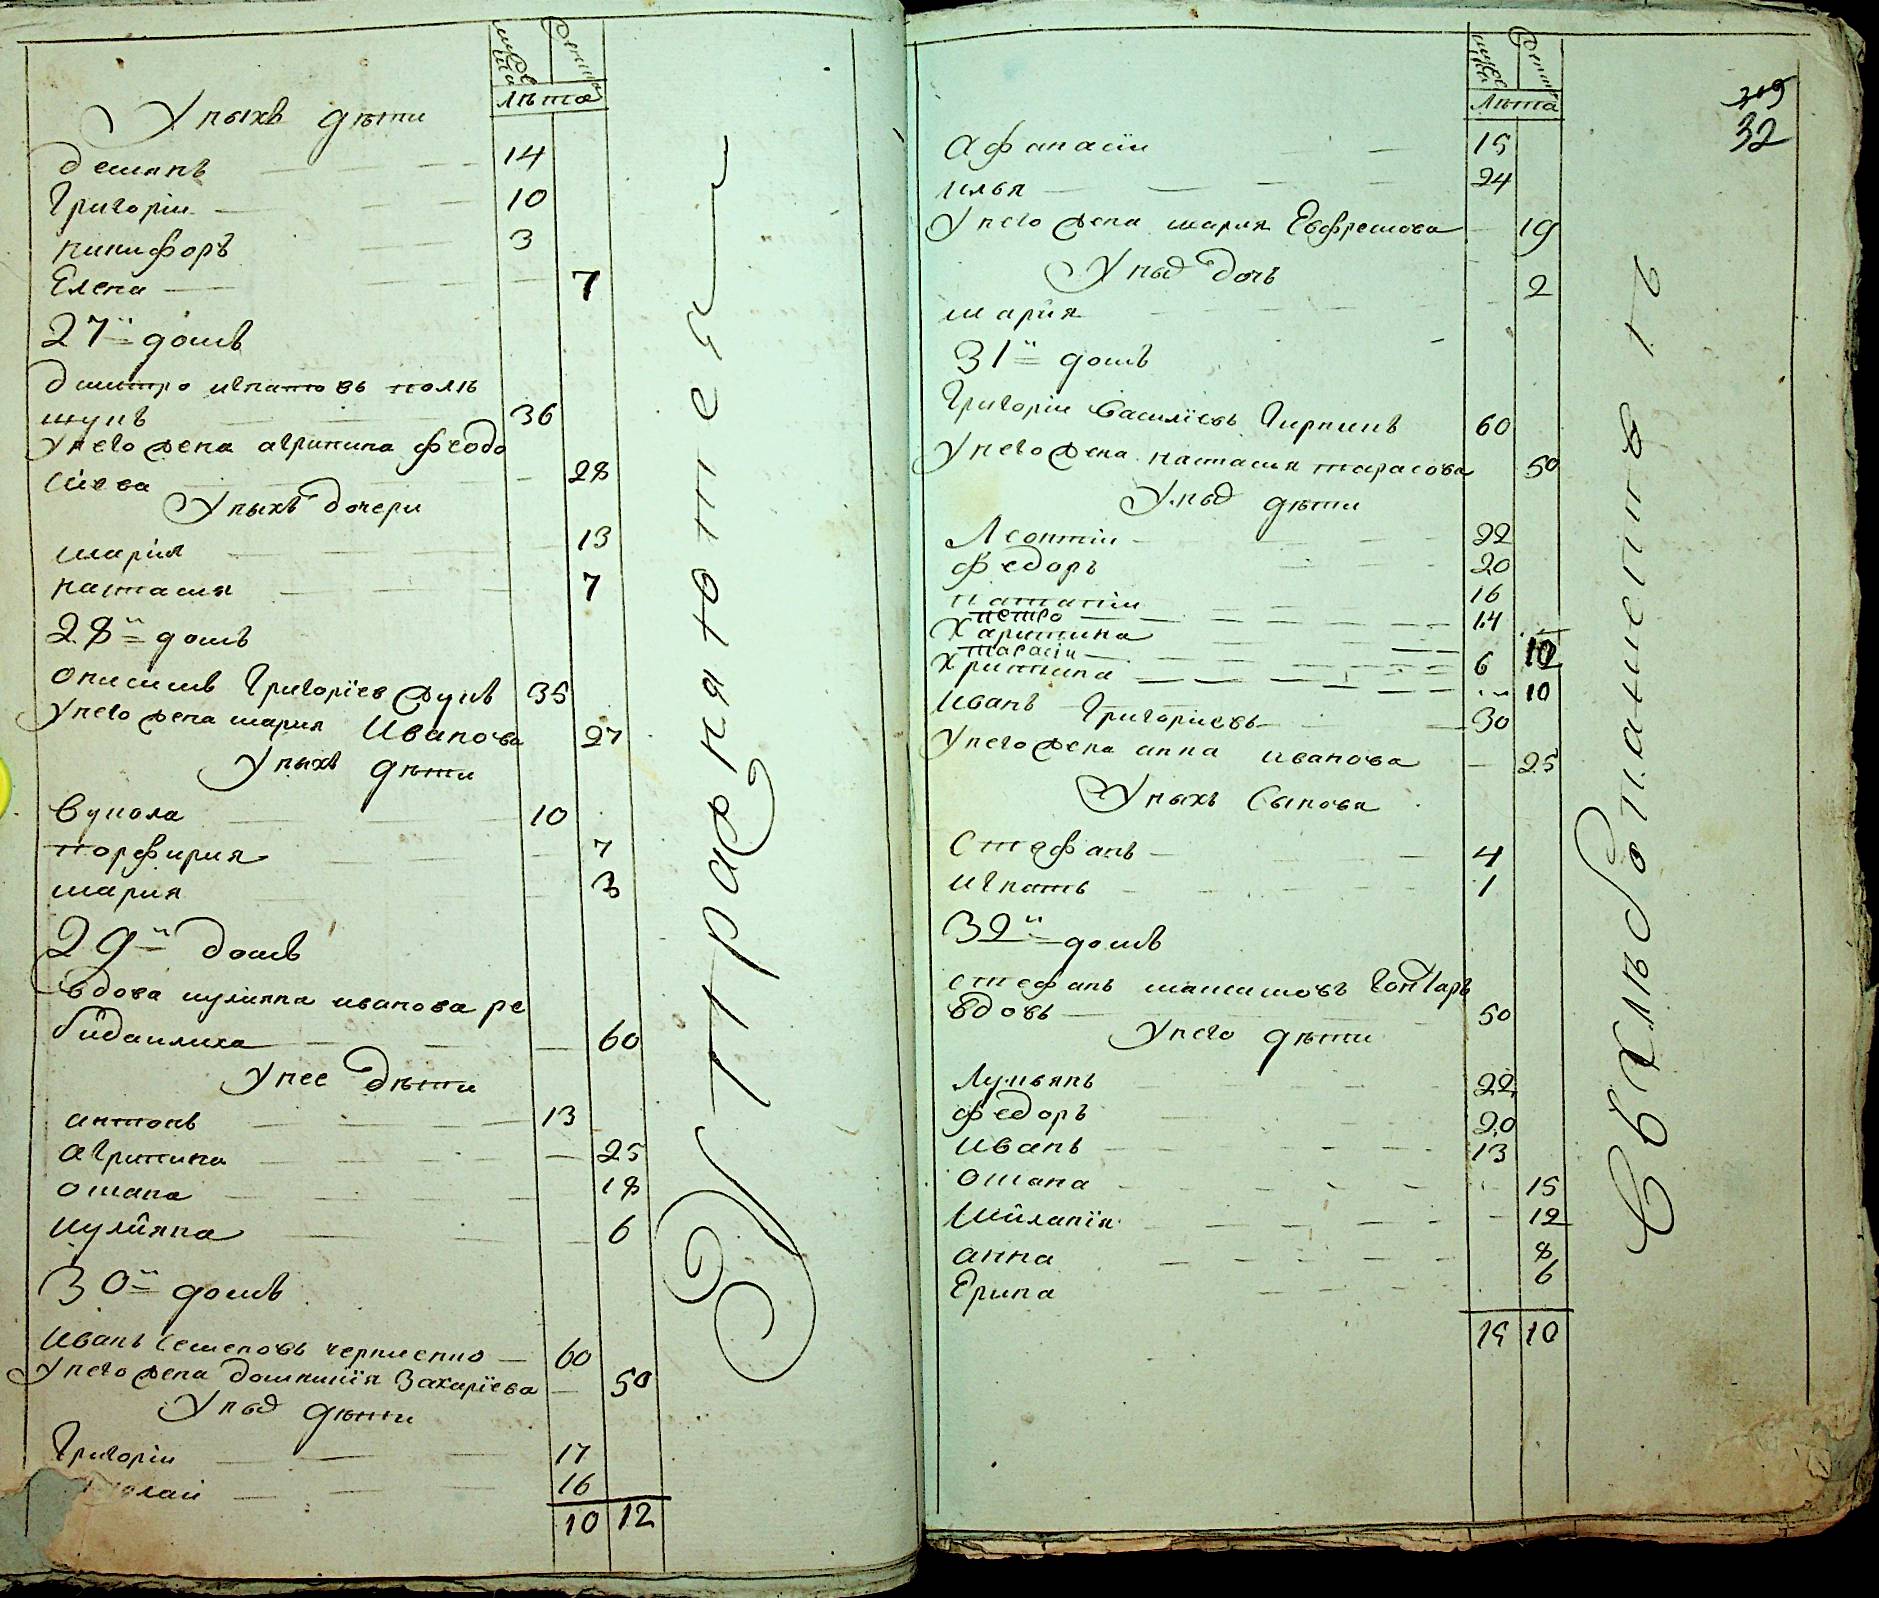 мужеска
женска
лѣта
У ныхъ дѣти
демянъ 14
Григоріи 10
никифоръ 3
Елена 7
27й домъ
дмитро игнатовъ полѣ
щукъ 36
У него жена агрипина феодо
сіева 28
У ныхъ дочери
марія 13
настасия 7
28й домъ
онисимъ Григорїев жукъ 35
У него жена мария Иванова 27
У ныхъ дѣти
вукола 10
порфирия 7
мария 3
29й домъ
вдова иулияна иванова ре
60
У нее дѣти
антонъ 13
агрипина 25
омана 18
иулияна 6
30й домъ
иванъ семеновъ 60
У него жена домникїя Захарїева 50
У ныхъ дѣти
Григоріи 17
колаи 16
10 12
мужеска
женска
лѣта
309
32
афанасіи 15
илья 24
У него жена мария Евфремова 19
У ныхъ дочь
мария 2
31й домъ
Григоріи василїевъ 60
У него жена настасия тарасова 50
У ныхъ дѣти
Леонтіи 22
федоръ 20
16
петро 14
Харитина 10
тарасіи 6
Христина 10
иванъ Григориевъ 30
У него жена анна иванова 25
У ныхъ сынова
Стефанъ 4
игнатъ 1
32й домъ
стефанъ максимовъ Гонтаръ
вдовъ 50
У него дѣти
Лукьянъ 22
федоръ 20
иванъ 13
омана 15
миланїя 12
анна 8
Ерина 6
15 10